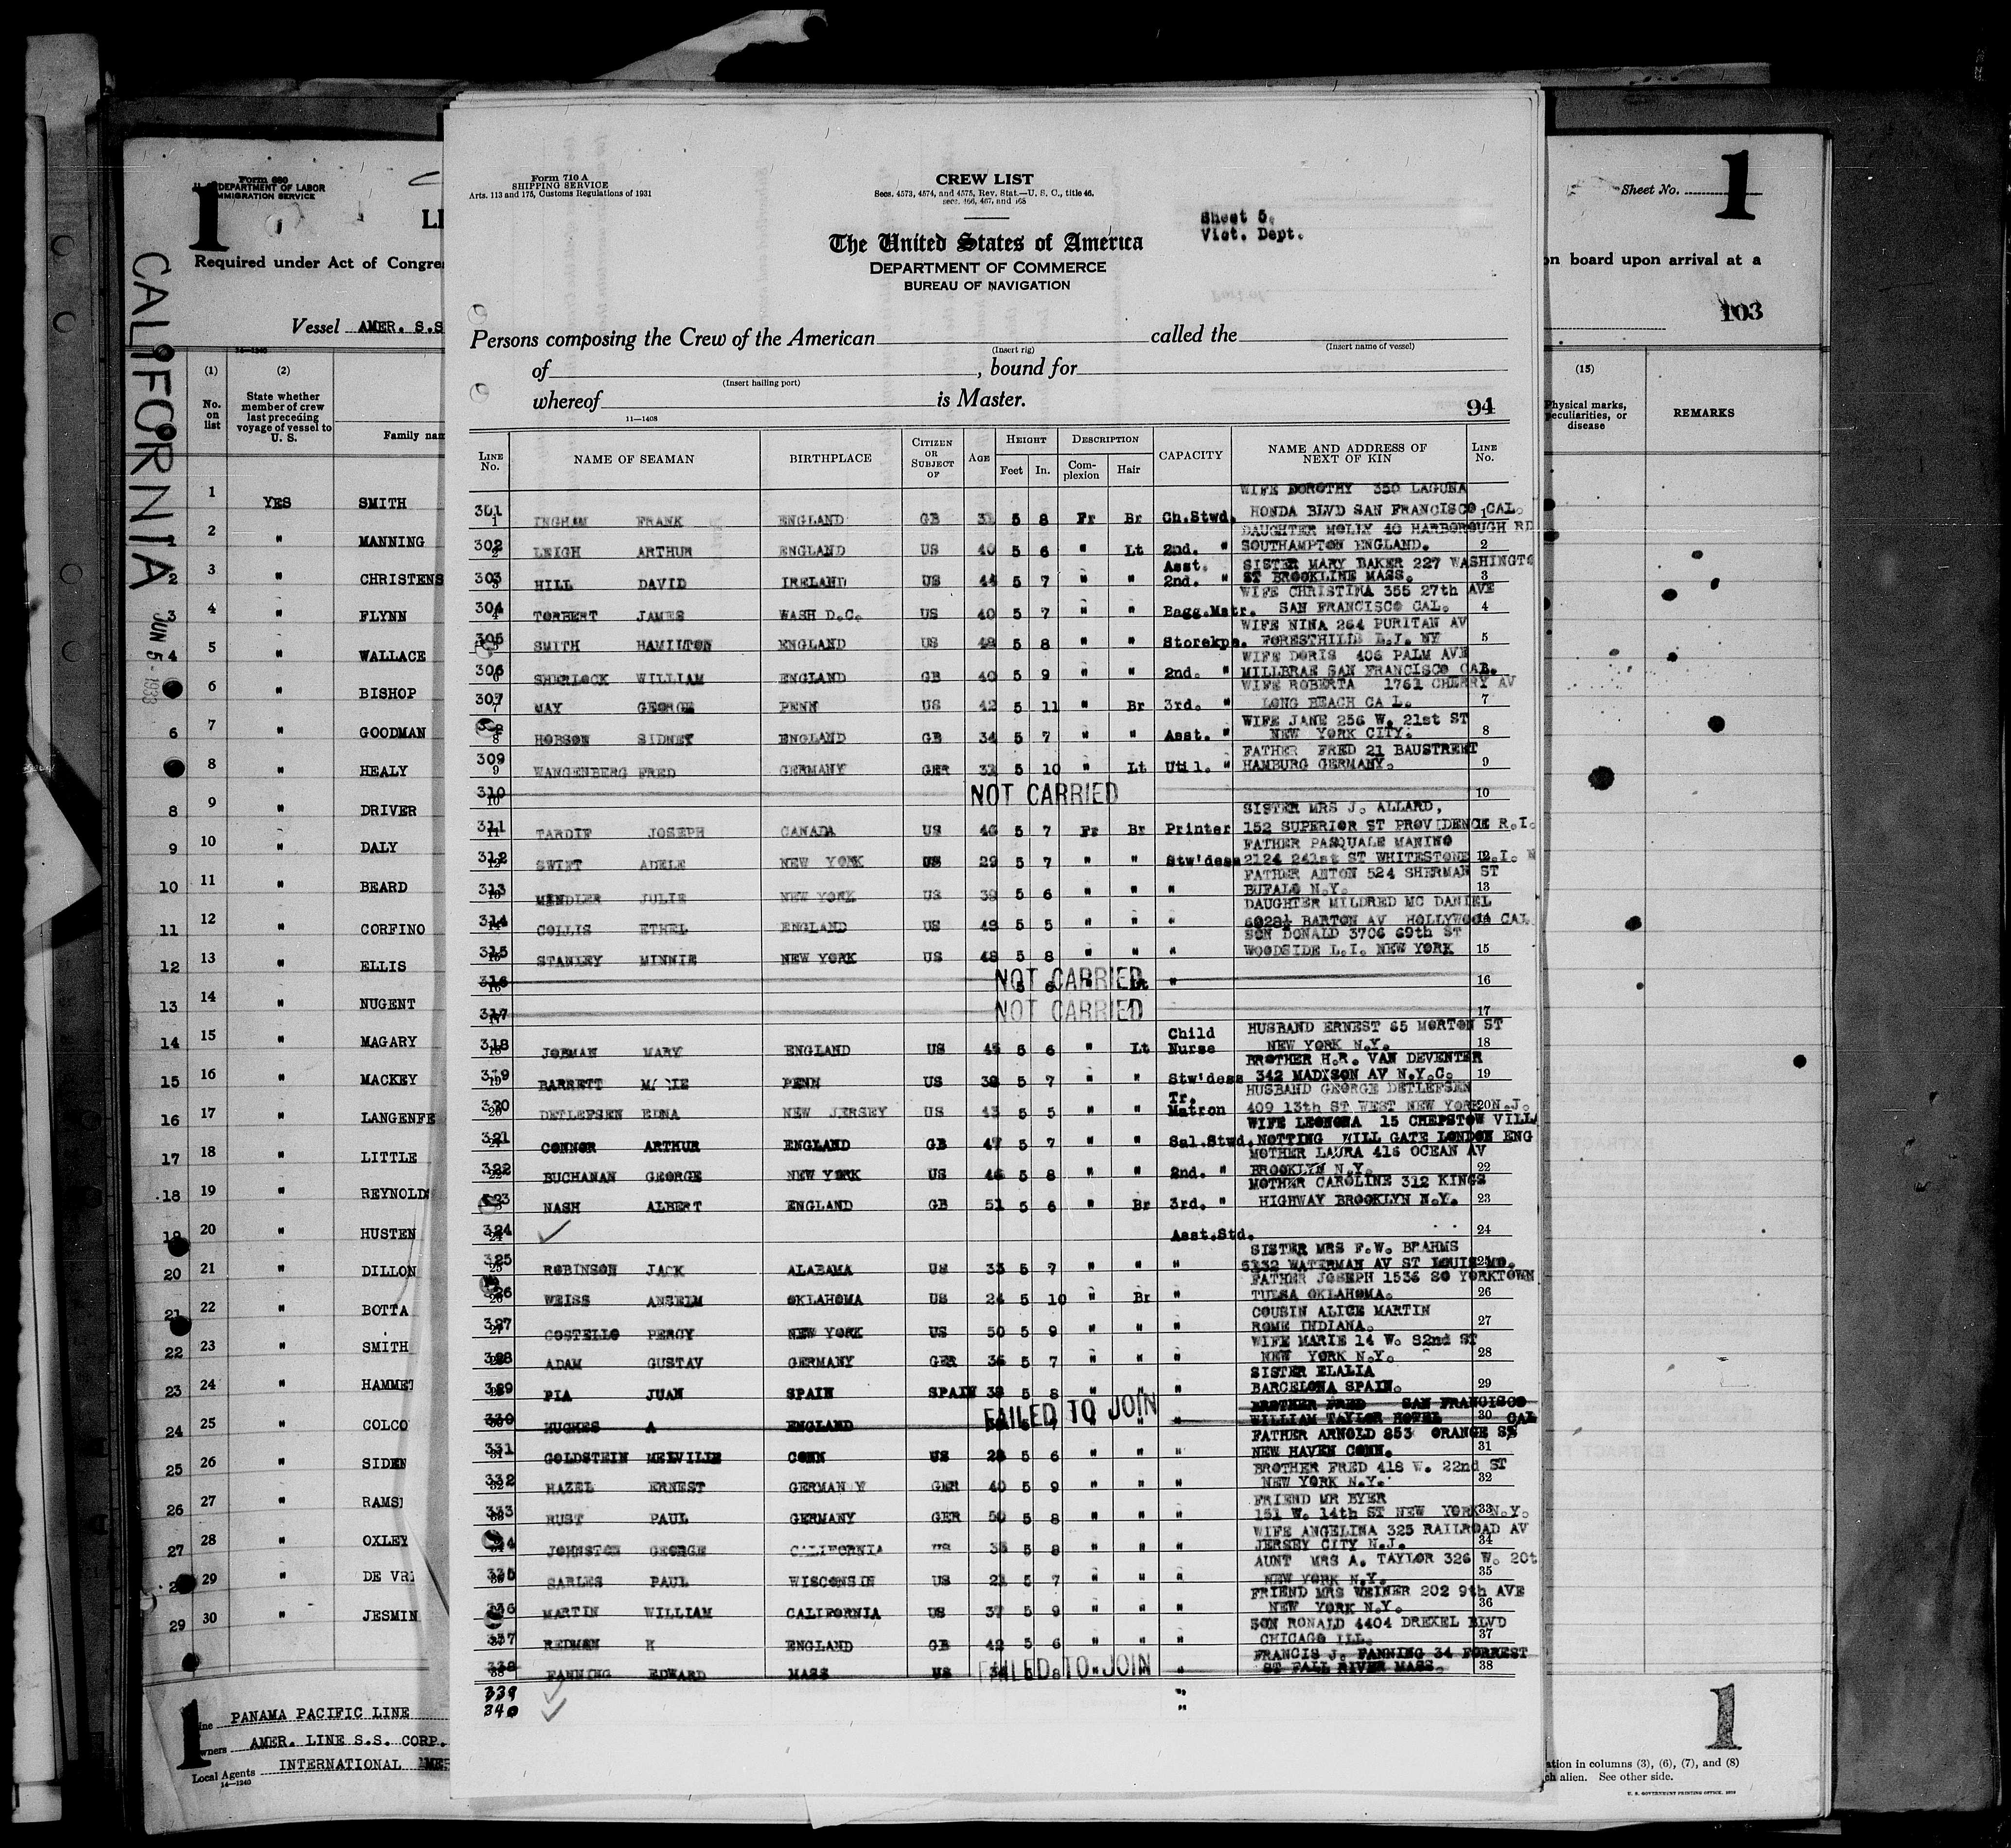 Form 680
U. S. DEPARTMENT OF LABOR
IMMIGRATION SERVICE
1
LI
Required under Act of Congre
Vessel AMER. S.S
CALIFORNIA
JUN 5 - 1933
14—1240
(1) (2)
No. on list
State whether member of crew last preceding voyage of vessel to U. S.
Family nam
1 YES SMITH
1 2 " MANNING
2 3 " CHRISTENS
3 4 " FLYNN
4 5 " WALLACE
6 " BISHOP
6 7 " GOODMAN
8 " HEALY
8 9 " DRIVER
9 10 " DALY
10 11 " BEARD
11 12 " CORFINO
12 13 " ELLIS
13 14 " NUGENT
14 15 " MAGARY
15 16 " MACKEY
16 17 " LANGENFE
17 18 " LITTLE
18 19 " REYNOLDS
19 20 " HUSTEN
20 21 " DILLON
21 22 " BOTTA
22 23 " SMITH
23 24 " HAMMET
24 25 " COLCO
25 26 " SIDEN
26 27 " RAMS
27 28 " OXLEY
29 " DE VRI
29 30 " JESMIN
1
Line PANAMA PACIFIC LINE
Owners AMER. LINE S.S. CORP.
Local Agents INTERNATIONAL MER
14—1240
Form 710 A
SHIPPING SERVICE
Arts. 113 and 175, Customs Regulations of 1931
CREW LIST
Secs. 4573, 4574, and 4575, Rev. Stat.—U. S. C., title 46,
secs. 466, 467, and 468
Sheet 5.
Vict. Dept.
The United States of America
DEPARTMENT OF COMMERCE
BUREAU OF NAVIGATION
Persons composing the Crew of the American called the
(Insert rig) (Insert name of vessel)
of , bound for
(Insert hailing port)
whereof is Master.
11—1408
94
LINE No. NAME OF SEAMAN BIRTHPLACE CITIZEN OR SUBJECT OF AGE HEIGHT Feet In. DESCRIPTION Complexion Hair CAPACITY NAME AND ADDRESS OF NEXT OF KIN LINE No.
WIFE DOROTHY 350 LAGUNA
301 1 INGHAM FRANK ENGLAND GB 5 8 Fr Br Ch.Stwd. HONDA BLVD SAN FRANCISCO CAL. 1
DAUGHTER MOLLY 40 HARBOROUGH RD
302 2 LEIGH ARTHUR ENGLAND US 40 5 6 " Lt 2nd. " SOUTHAMPTON ENGLAND. 2
Asst. SISTER MARY BAKER 227 WASHINGTO
303 3 HILL DAVID IRELAND US 44 5 7 " " 2nd. " ST BROOKLINE MASS. 3
WIFE CHRISTINA 355 27th AVE
304 4 TORBERT JAMES WASH D.C. US 40 5 7 " " Bagg.Mstr. SAN FRANCISCO CAL. 4
WIFE NINA 264 PURITAN AV
305 5 SMITH HAMILTON ENGLAND US 5 8 " " Storekps. FORESTHILLS L.I. NY 5
WIFE DORIS 406 PALM AVE
306 6 SHERLOCK WILLIAM ENGLAND GB 40 5 9 " " 2nd. " MILLBRAE SAN FRANCISCO CAL. 6
WIFE ROBERTA 1761 CHERRY AV
307 7 MAY GEORGE PENN US 42 5 11 " Br 3rd. " LONG BEACH CA L. 7
WIFE JANE 256 W. 21st ST
8 HOBSON SIDNEY ENGLAND GB 34 5 7 " " Asst. " NEW YORK CITY. 8
FATHER FRED 21 BAUSTREET
309 9 WANGENBERG FRED GERMANY GER 5 10 " Lt Util. " HAMBURG GERMANY. 9
310 10 NOT CARRIED 10
SISTER MRS J. ALLARD,
311 11 TARDIF JOSEPH CANADA US 46 5 7 Fr Br Printer 152 SUPERIOR ST PROVIDENCE R.I.
FATHER PASQUALE MANINO
312 12 SWIFT ADELE NEW YORK US 29 5 7 " " Stw'dess 2124 241st ST WHITESTONE L.I. N
FATHER ANTON 524 SHERMAN ST
313 13 MINDLER JULIE NEW YORK US 39 5 6 " " " BUFALO N.Y. 13
DAUGHTER MILDRED MC DANIEL
314 14 COLLIS ETHEL ENGLAND US 5 5 " " " 6028½ BARTON AV HOLLYWOOD CAL
SON DONALD 3706 69th ST
315 15 STANLEY MINNIE NEW YORK US 48 5 8 " " " WOODSIDE L.I. NEW YORK 15
316 16 NOT CARRIED 5 6 Lt " 16
317 17 NOT CARRIED 17
Child HUSBAND ERNEST 65 MORTON ST
318 18 JORMAN MARY ENGLAND US 45 5 6 " Lt Nurse NEW YORK N.Y. 18
BROTHER H.R. VAN DEVENTER
319 19 BARRETT MARIE PENN US 38 5 7 " " Stw'dess 342 MADISON AV N.Y.C. 19
Tr. HUSBAND GEORGE DETLEFSEN
320 20 DETLEFSEN EDNA NEW JERSEY US 43 5 5 " " Matron 409 13th ST WEST NEW YORK N.J. 20
WIFE LEONORA 15 CHEPSTOW VILLA
321 21 CONNOR ARTHUR ENGLAND GB 47 5 7 " " Sal.Stwd. NOTTING HILL GATE LONDON ENG
MOTHER LAURA 416 OCEAN AV
322 22 BUCHANAN GEORGE NEW YORK US 46 5 8 " " 2nd. " BROOKLYN N.Y. 22
MOTHER CAROLINE 312 KINGS
323 NASH ALBERT ENGLAND GB 51 5 6 " Br 3rd. " HIGHWAY BROOKLYN N.Y. 23
324 24 ✓ Asst.Std. 24
SISTER MRS F.W. BRAHMS
325 25 ROBINSON JACK ALABAMA US 33 5 7 " " " 5132 WATERMAN AV ST LOUIS MO. 25
FATHER JOSEPH 1536 SO YORKTOWN
326 26 WEISS ANSELM OKLAHOMA US 24 5 10 " Br " TULSA OKLAHOMA. 26
COUSIN ALICE MARTIN
327 27 COSTELLO PERCY NEW YORK US 50 5 9 " " " ROME INDIANA. 27
WIFE MARIE 14 W. 82nd ST
328 28 ADAM GUSTAV GERMANY GER 36 5 7 " " " NEW YORK N.Y. 28
SISTER ELALIA
329 29 PIA JUAN SPAIN SPAIN 38 5 8 " " " BARCELONA SPAIN. 29
BROTHER FRED SAN FRANCISCO
330 HUGHES A ENGLAND FAILED TO JOIN " WILLIAM TAYLOR HOTEL CAL 30
FATHER ARNOLD 853 ORANGE ST
331 31 GOLDSTEIN MELVILLE CONN US 28 5 6 " " " NEW HAVEN CONN. 31
BROTHER FRED 418 W. 22nd ST
332 32 HAZEL ERNEST GERMANY GER 40 5 9 " " " NEW YORK N.Y. 32
FRIEND MR BYER
333 33 RUST PAUL GERMANY GER 50 5 8 " " " 151 W. 14th ST NEW YORK N.Y. 33
WIFE ANGELINA 325 RAILROAD AV
34 JOHNSTON GEORGE CALIFORNIA US 5 8 " " " JERSEY CITY N.J. 34
AUNT MRS A. TAYLOR 326 W. 20t
335 35 SARLES PAUL WISCONSIN US 21 5 7 " " " NEW YORK N.Y. 35
FRIEND MRS WEINER 202 9th AVE
336 MARTIN WILLIAM CALIFORNIA US 37 5 9 " " " NEW YORK N.Y. 36
SON RONALD 4404 DREXEL BLVD
337 REDMAN H ENGLAND GB 42 5 6 " " " CHICAGO ILL. 37
FRANCIS J. FANNING 34 FORREST
338 38 FANNING EDWARD MASS US 34 5 8 FAILED TO JOIN " ST FALL RIVER MASS. 38
339 ✓ "
340 ✓ "
Sheet No. 1
on board upon arrival at a
103
(15)
Physical marks, peculiarities, or disease
REMARKS
1
ation in columns (3), (6), (7), and (8)
ch alien. See other side.
U. S. GOVERNMENT PRINTING OFFICE